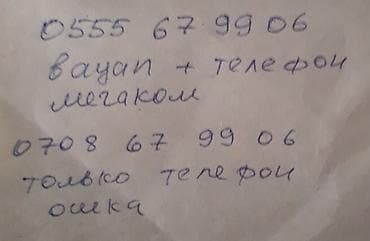 0555 67 9906
вацап + телефон
мегаком
0708 67 99 06
только телефон
ошка